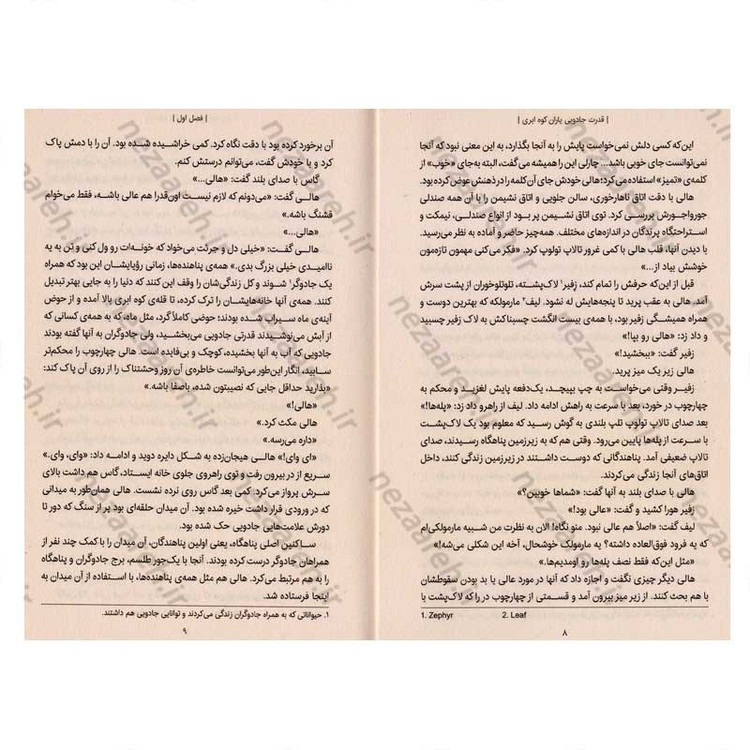 | قدرت جادویی یاران کوه ابری |
این‌که کسی دلش نمی‌خواست پایش را به آنجا بگذارد، به این معنی نبود که آنجا
نمی‌توانست جای خوبی باشد... چارلی این را همیشه می‌گفت، البته به‌جای «خوب» از
کلمه‌ی «تمیز» استفاده می‌کرد؛ هالی خودش جای آن کلمه را در ذهنش عوض کرده بود.
هالی با دقت اتاق ناهارخوری، سالن جلویی و اتاق نشیمن را با آن همه صندلی
جورواجورش بررسی کرد. توی اتاق نشیمن پر بود از انواع صندلی، نیمکت و
استراحتگاه پرندگان در اندازه‌های مختلف. همه‌چیز حاضر و آماده به نظر می‌رسید.
با دیدن آنها، قلب هالی با کمی غرور تالاپ تولوپ کرد. «فکر می‌کنی مهمون تازه‌مون
خوشش بیاد از...»
قبل از این‌که حرفش را تمام کند، زفیر۱ لاک‌پشته، تلوتلوخوران از پشت سرش
آمد. هالی به عقب پرید تا پنجه‌هایش له نشود. لیف۲ مارمولکه که بهترین دوست و
همراه همیشگی زفیر بود، با همه‌ی بیست انگشت چسبناکش به لاک زفیر چسبید
و داد زد: «هالی رو بپا!»
زفیر گفت: «ببخشید!»
هالی زیر یک میز پرید.
زفیر وقتی می‌خواست به چپ بپیچد، یک‌دفعه پایش لغزید و محکم به
چهارچوب در خورد، بعد با سرعت به راهش ادامه داد. لیف از راهرو داد زد: «پله‌ها!»
بعد صدای تالاپ تولوپ تلپ بلندی به گوش رسید که معلوم بود یک لاک‌پشت
با سرعت از پله‌ها پایین می‌رود. وقتی هم که به زیرزمین پناهگاه رسیدند، صدای
تالاپ ضعیفی آمد. پناهندگانی که دوست داشتند در زیرزمین زندگی کنند، داخل
اتاق‌های آنجا زندگی می‌کردند.
هالی با صدای بلند به آنها گفت: «شماها خوبین؟»
زفیر هورا کشید و گفت: «عالی بود!»
لیف گفت: «اصلاً هم عالی نبود. منو نگاه! الان به نظرت من شبیه مارمولکی‌ام
که یه فرود فوق‌العاده داشته؟ یه مارمولک خوشحال، آخه این شکلی می‌شه!»
«مثل این‌که فقط نصف پله‌ها رو اومدیم‌ها.»
هالی دیگر چیزی نگفت و اجازه داد که آنها در مورد عالی یا بد بودن سقوطشان
با هم بحث کنند. از زیر میز بیرون آمد و قسمتی از چهارچوب در را که لاک‌پشت با
1. Zephyr 2. Leaf
۸
| فصل اول |
آن برخورد کرده بود با دقت نگاه کرد. کمی خراشیده شده بود. آن را با دمش پاک
کرد و با خودش گفت، می‌توانم درستش کنم.
گاس با صدای بلند گفت: «هالی...»
هالی گفت: «می‌دونم که لازم نیست اون‌قدرا هم عالی باشه، فقط می‌خوام
قشنگ باشه.»
«هالی...»
هالی گفت: «خیلی دل و جرئت می‌خواد که خونه‌ات رو ول کنی و تن به یه
ناامیدی خیلی بزرگ بدی.» همه‌ی پناهنده‌ها، زمانی رؤیایشان این بود که همراه
یک جادوگر۱ شوند و کل زندگی‌شان را وقف این کنند که دنیا را به جایی بهتر تبدیل
کنند. همه‌ی آنها خانه‌هایشان را ترک کرده، تا قله‌ی کوه ابری بالا آمده و از حوض
آینه‌ی ماه سیراب شده بودند؛ حوضی کاملاً گرد، مثل ماه، که به همه‌ی کسانی که
از آبش می‌نوشیدند قدرتی جادویی می‌بخشید، ولی جادوگران به آنها گفته بودند
جادویی که آب به آنها بخشیده، کوچک و بی‌فایده است. هالی چهارچوب را محکم‌تر
سابید، انگار این‌طور می‌توانست خاطره‌ی آن روز وحشتناک را از روی آن پاک کند:
«بذارید حداقل جایی که نصیبتون شده، باصفا باشه.»
«هالی!»
هالی مکث کرد. «
«داره می‌رسه.»
«ای وای!» هالی هیجان‌زده به شکل دایره دوید و ادامه داد: «وای، وای.»
سریع از در بیرون رفت و توی راهروی جلوی خانه ایستاد، گاس هم داشت بالای
سرش پرواز می‌کرد. کمی بعد گاس روی نرده نشست. هالی همان‌طور به میدانی
که در ورودی قرار داشت خیره شده بود. آن میدان حلقه‌ای بود پر از سنگ که دور تا
دورش علامت‌هایی جادویی حک شده بود.
ساکنین اصلی پناهگاه، یعنی اولین پناهندگان، آن میدان را با کمک چند نفر از
همراهان جادوگر درست کرده بودند. آنجا با یک‌جور طلسم، برج جادوگران و پناهگاه
را به هم مرتبط می‌کرد. هالی هم مثل همه‌ی پناهنده‌ها، با استفاده از آن میدان به
اینجا فرستاده شد.
۱. حیواناتی که به همراه جادوگران زندگی می‌کردند و توانایی جادویی هم داشتند.
۹
nezaareh.ir